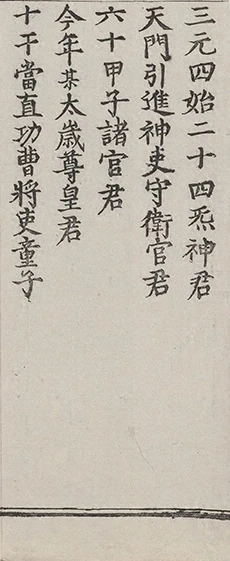 三元四始二十四炁神君
天門引進神吏守衛官君
六十甲子諸官君
今年某太歲尊皇君
十干當直功曹將吏童子